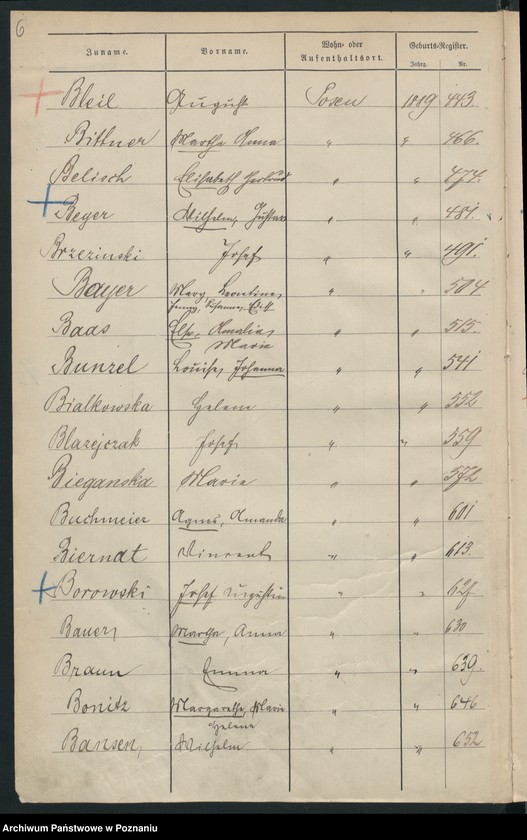 6
Zuname. Vorname. Wohn- oder Aufenthaltsort. Geburts-Register.
Jahrg. Nr.
Bleil August Posen 1889 443.
Bittner Martha Anna " " 466.
Belisch Elisabeth Gertrud " " 474.
Beyer Wilhelm, Gustav " " 481.
Brzezinski Josef " " 491.
Beyer Mary, Leontine, " " 504.
Johanna, Edith
Baas Else Amalia " " 515.
Marie
Bunzel Louise, Johanna " " 541
Bialkowska Helene " " 552
Blazejczak Josef " " 559
Bieganska Marie " " 572
Buchmeier Agnes, Amanda " " 601
Bierndt Vincent " " 613.
Borowski Josef Augustin " " 628
Bauer, Martha, Anna " " 630
Braun Emma " " 639.
Bonitz Margarethe, Marie " " 646
Helene
Bansen, Wilhelm " " 652
Archiwum Państwowe w Poznaniu